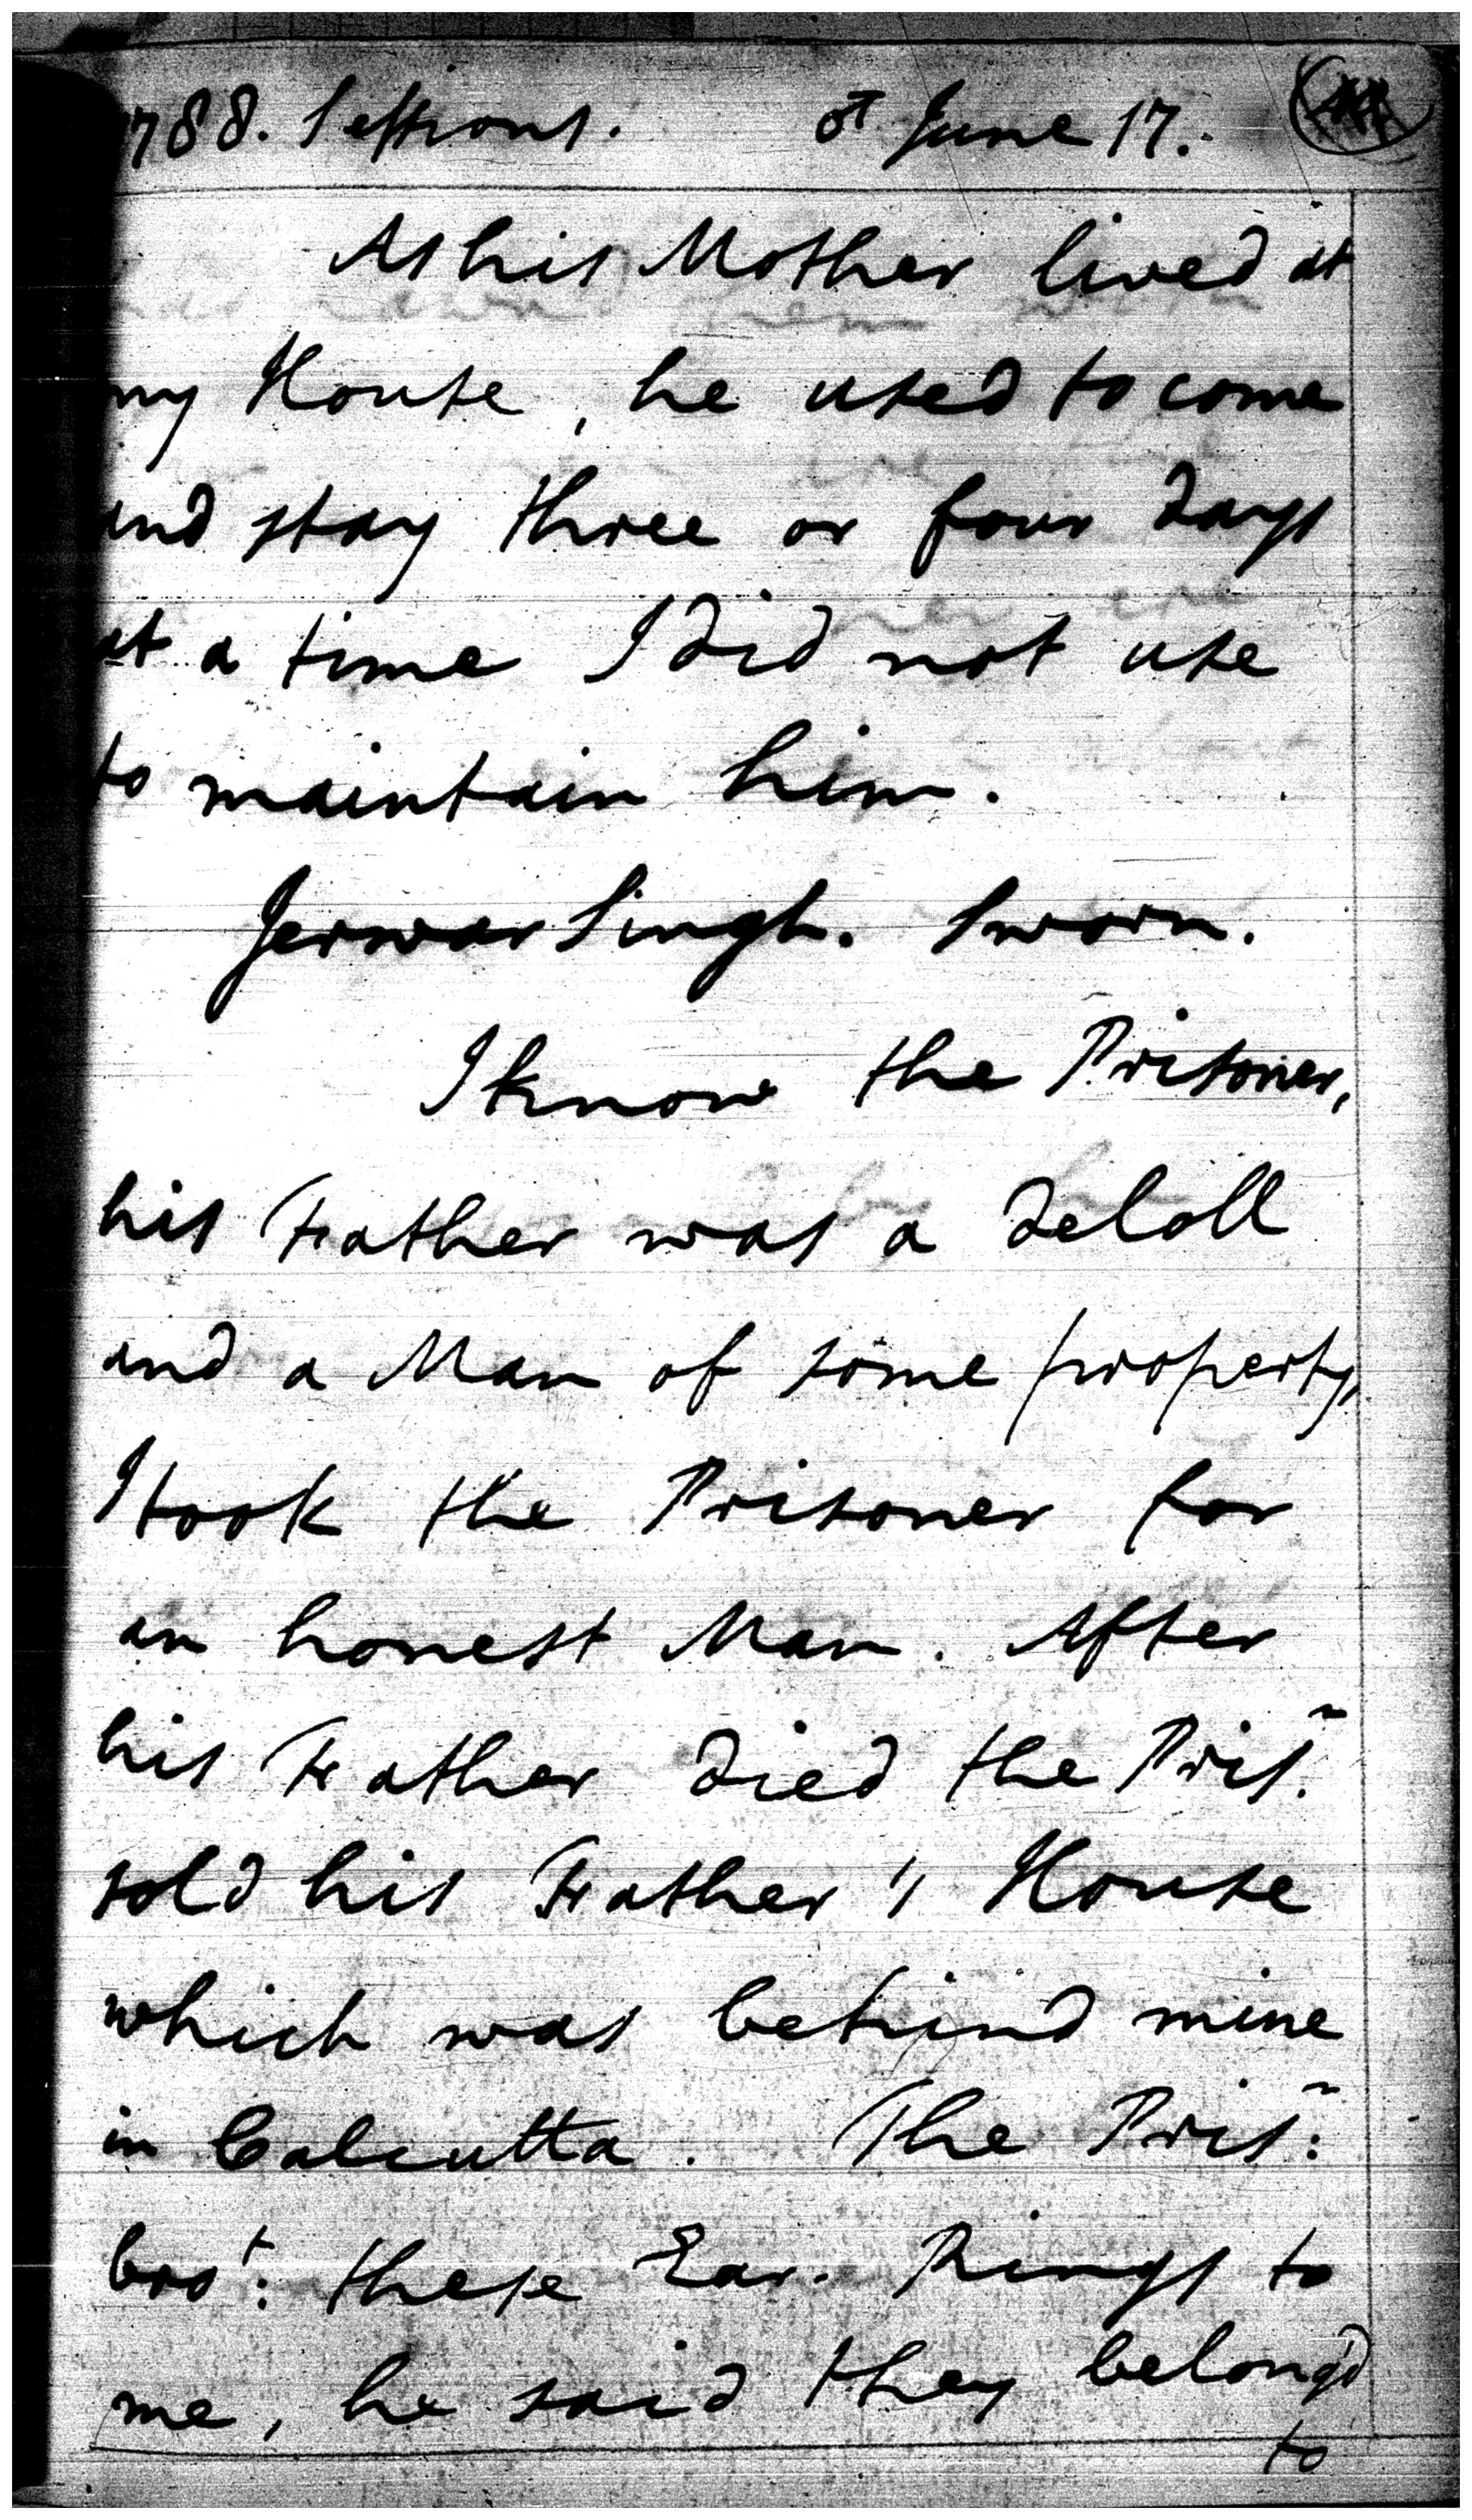 1788. Sessions. ♂ June 17.
As his Mother lived at
my House, he used to come
and stay three or four days
at a time I did not use
to maintain him.
Jerwar Singh. Sworn.
I know the Prisoner,
his Father was a deloll
and a Man of some property,
I took the Prisoner for
an honest Man. After
his Father died the Pris.ʳ
sold his Father's House
which was behind mine
in Calcutta. The Pris:ʳ
bro:ᵗ these Ear-Rings to
me, he said they belong'd
to